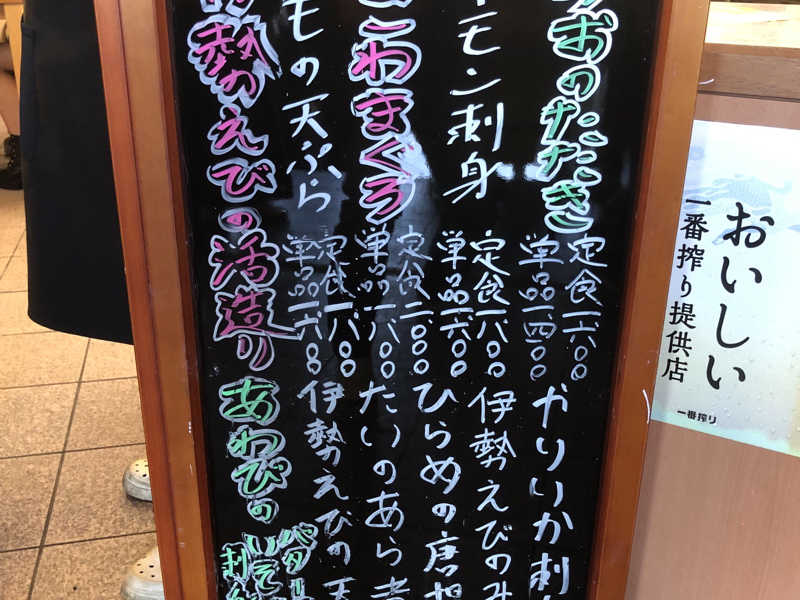 おいしい
一番搾り提供店
一番搾り
おのたたき
定食一六〇〇
単品一四〇〇
モン刺身
定食一八〇〇
単品一六〇〇
こわまぐろ
定食二〇〇〇
単品一八〇〇
もの天ぷら
定食一八〇〇
単品一六〇〇
勢えびの活造り
やりいか刺
伊勢えびのみ
ひらめの唐
たいのあら
伊勢えびの天
あわびの
バター
いそ
刺